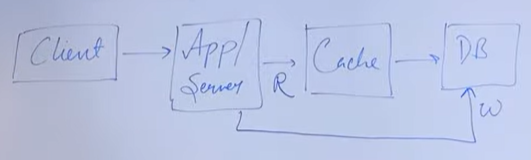 Client
App/
Server
R
Cache
DB
W